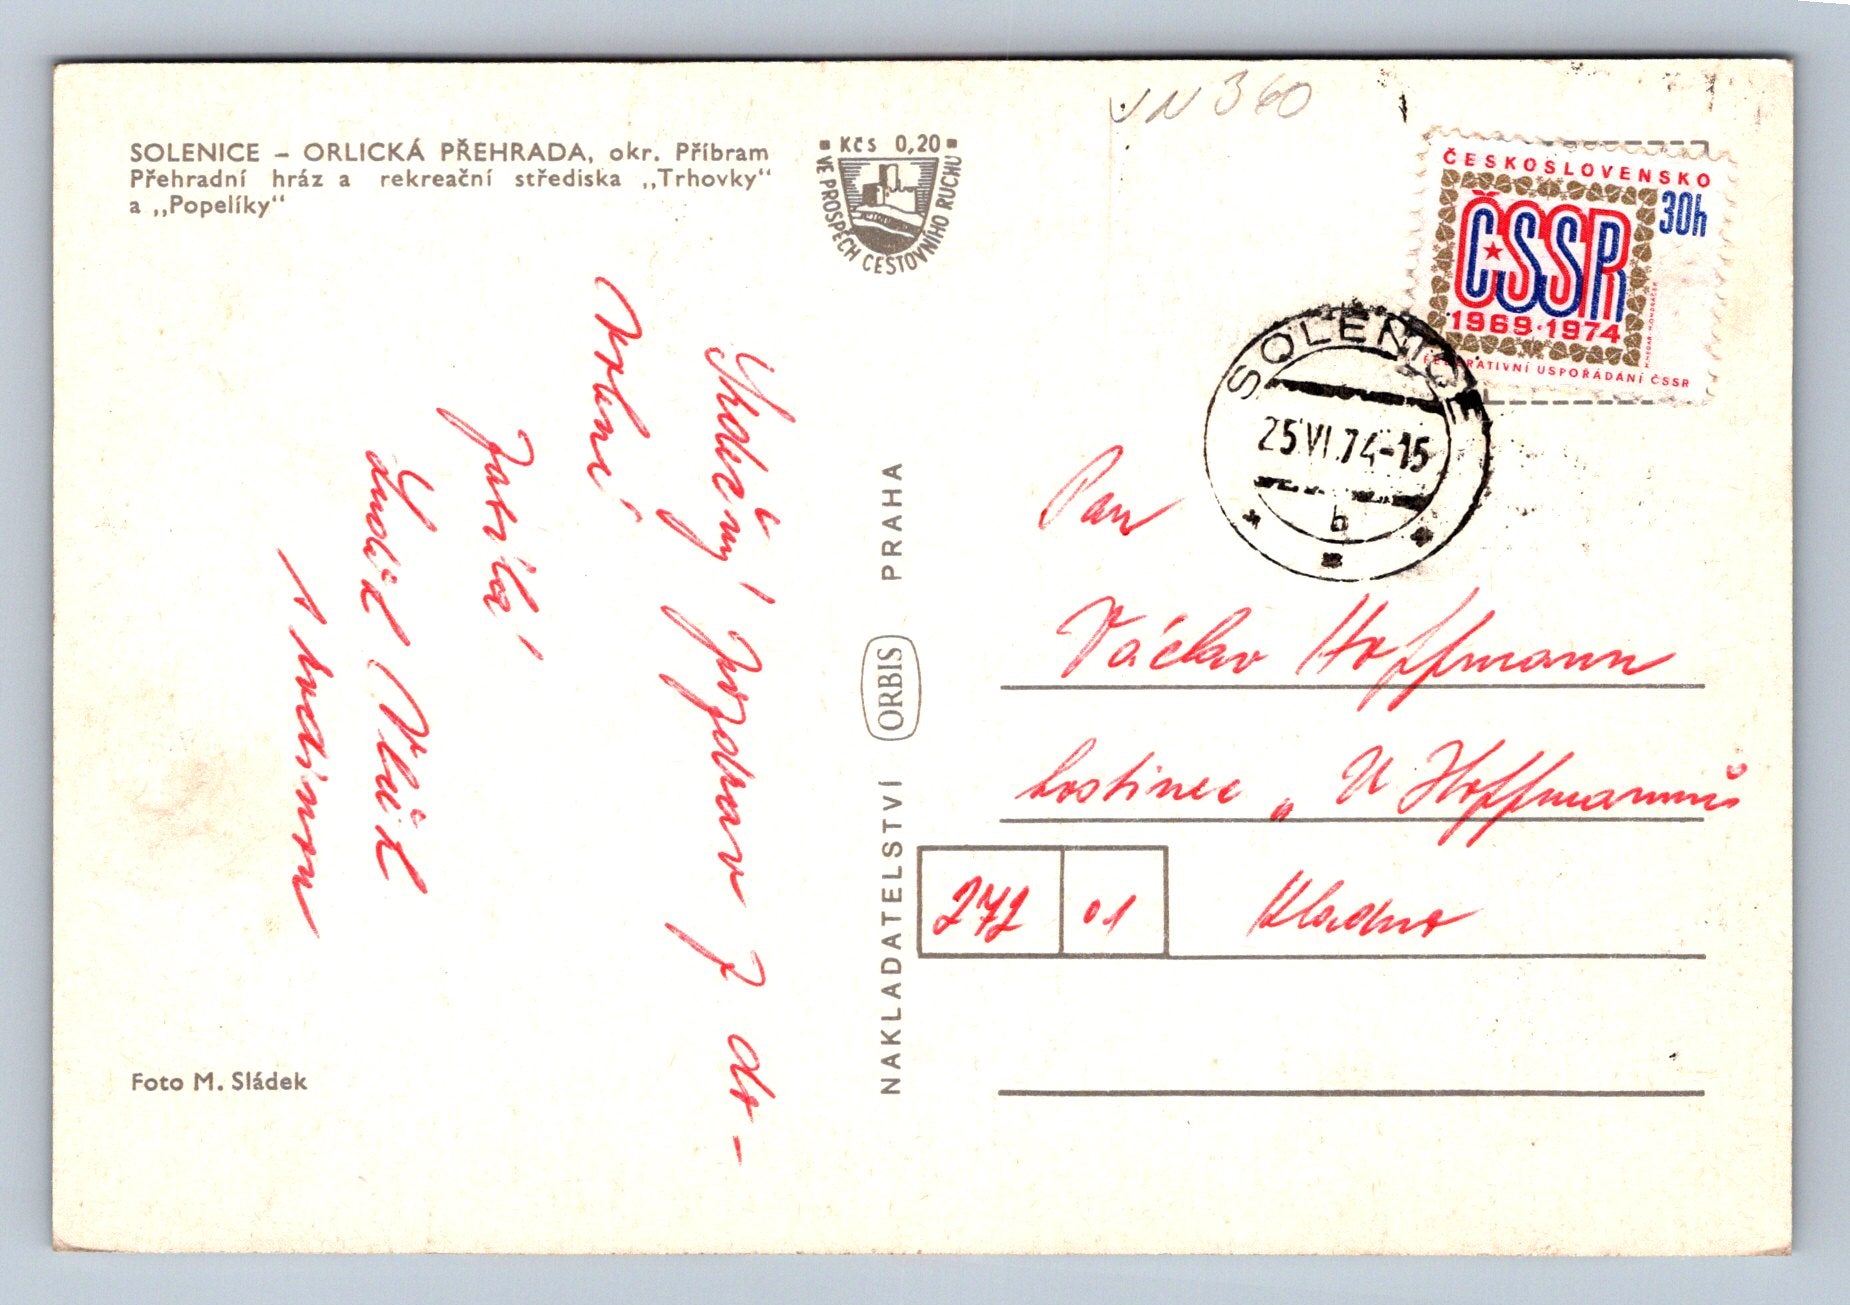 SOLENICE – ORLICKÁ PŘEHRADA, okr. Příbram
Přehradní hráz a rekreační střediska ,,Trhovky"
a ,,Popelíky"
Kčs 0,20
VE PROSPĚCH CESTOVNÍHO RUCHU
Srdečný pozdrav z do-
volené
Foto M. Sládek
NAKLADATELSTVÍ ORBIS PRAHA
VN 360
ČESKOSLOVENSKO
30h
ČSSR
1969·1974
FEDERATIVNÍ USPOŘÁDÁNÍ ČSSR
SOLENICE
25.VI.74-15
b
Pan
Václav Hoffmann
hostinec „U Hoffmannů
272 01 Kladno